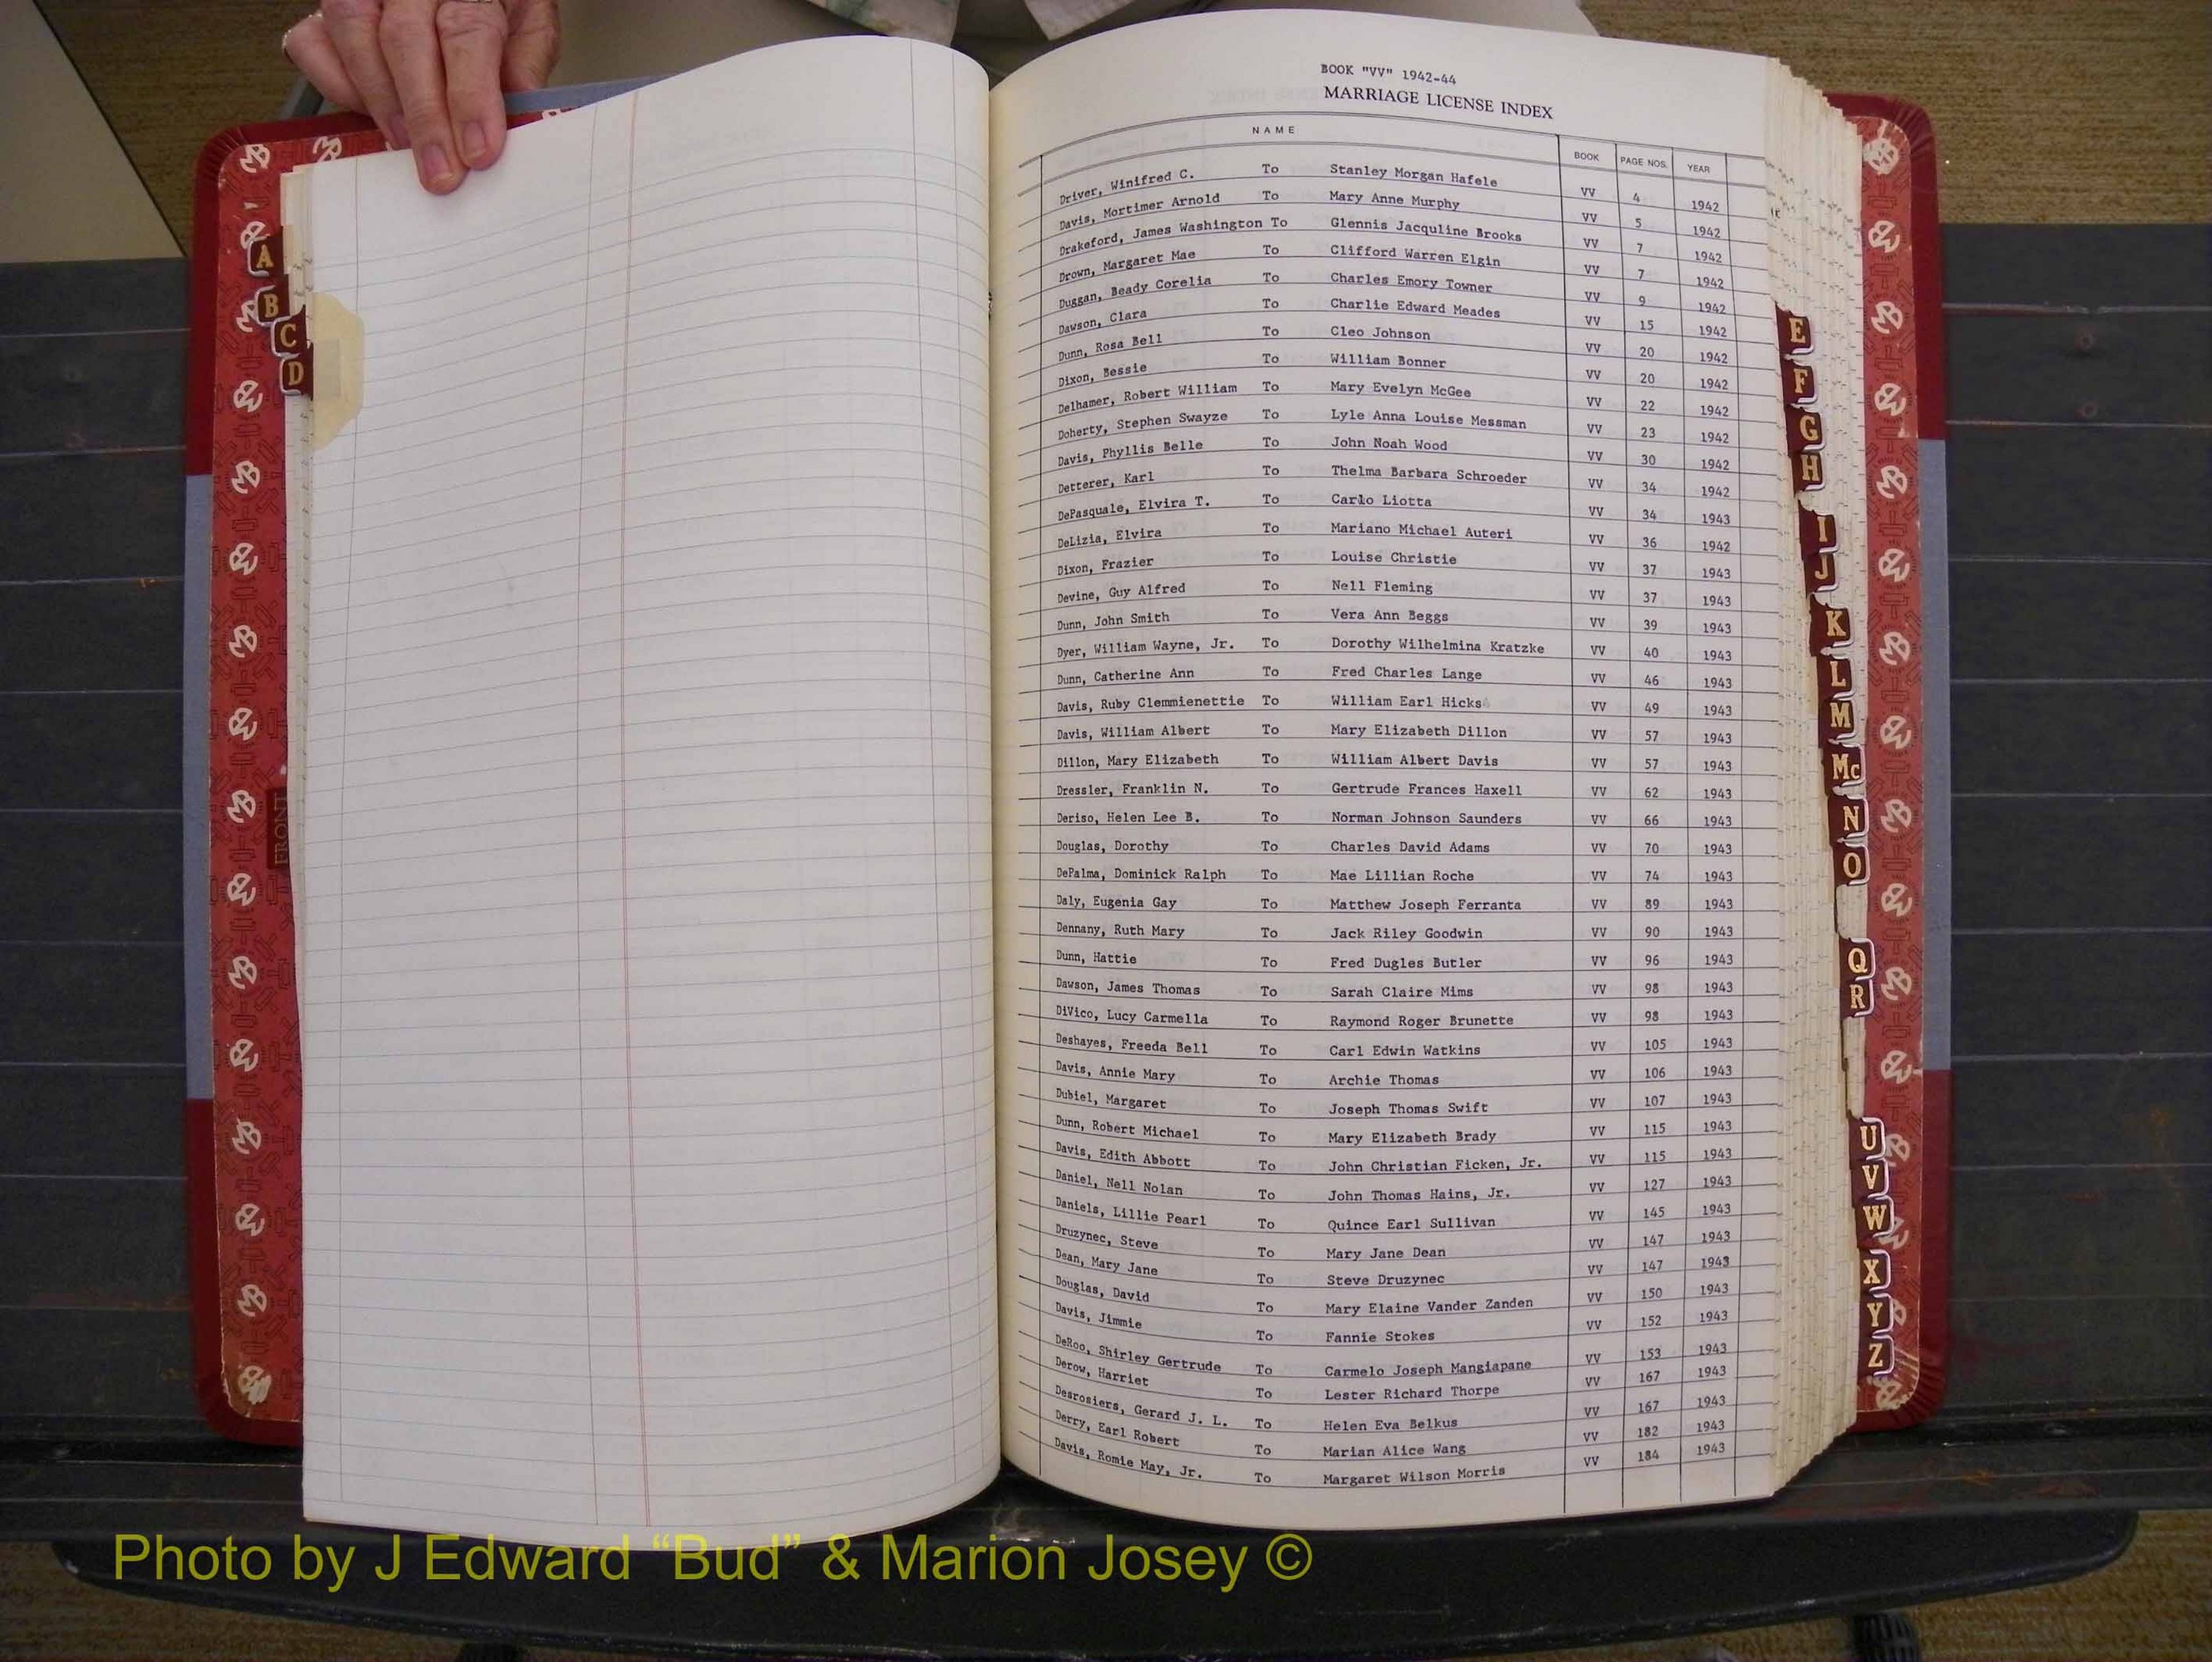 BOOK "VV" 1942-44
MARRIAGE LICENSE INDEX
NAME BOOK PAGE NOS. YEAR
Driver, Winifred C. To Stanley Morgan Hafele VV 4 1942
Davis, Mortimer Arnold To Mary Anne Murphy VV 5 1942
Drakeford, James Washington To Glennis Jacquline Brooks VV 7 1942
Drown, Margaret Mae To Clifford Warren Elgin VV 7 1942
Duggan, Beady Corelia To Charles Emory Towner VV 9 1942
Dawson, Clara To Charlie Edward Meades VV 15 1942
Dunn, Rosa Bell To Cleo Johnson VV 20 1942
Dixon, Bessie To William Bonner VV 20 1942
Delhamer, Robert William To Mary Evelyn McGee VV 22 1942
Doherty, Stephen Swayze To Lyle Anna Louise Messman VV 23 1942
Davis, Phyllis Belle To John Noah Wood VV 30 1942
Detterer, Karl To Thelma Barbara Schroeder VV 34 1942
DePasquale, Elvira T. To Carlo Liotta VV 34 1943
DeLizia, Elvira To Mariano Michael Auteri VV 36 1942
Dixon, Frazier To Louise Christie VV 37 1943
Devine, Guy Alfred To Nell Fleming VV 37 1943
Dunn, John Smith To Vera Ann Beggs VV 39 1943
Dyer, William Wayne, Jr. To Dorothy Wilhelmina Kratzke VV 40 1943
Dunn, Catherine Ann To Fred Charles Lange VV 46 1943
Davis, Ruby Clemmienettie To William Earl Hicks VV 49 1943
Davis, William Albert To Mary Elizabeth Dillon VV 57 1943
Dillon, Mary Elizabeth To William Albert Davis VV 57 1943
Dressler, Franklin N. To Gertrude Frances Haxell VV 62 1943
Deriso, Helen Lee B. To Norman Johnson Saunders VV 66 1943
Douglas, Dorothy To Charles David Adams VV 70 1943
DePalma, Dominick Ralph To Mae Lillian Roche VV 74 1943
Daly, Eugenia Gay To Matthew Joseph Ferranta VV 89 1943
Dennany, Ruth Mary To Jack Riley Goodwin VV 90 1943
Dunn, Hattie To Fred Dugles Butler VV 96 1943
Dawson, James Thomas To Sarah Claire Mims VV 98 1943
DiVico, Lucy Carmella To Raymond Roger Brunette VV 98 1943
Deshayes, Freeda Bell To Carl Edwin Watkins VV 105 1943
Davis, Annie Mary To Archie Thomas VV 106 1943
Dubiel, Margaret To Joseph Thomas Swift VV 107 1943
Dunn, Robert Michael To Mary Elizabeth Brady VV 115 1943
Davis, Edith Abbott To John Christian Ficken, Jr. VV 115 1943
Daniel, Nell Nolan To John Thomas Hains, Jr. VV 127 1943
Daniels, Lillie Pearl To Quince Earl Sullivan VV 145 1943
Druzynec, Steve To Mary Jane Dean VV 147 1943
Dean, Mary Jane To Steve Druzynec VV 147 1943
Douglas, David To Mary Elaine Vander Zanden VV 150 1943
Davis, Jimmie To Fannie Stokes VV 152 1943
DeRoo, Shirley Gertrude To Carmelo Joseph Mangiapane VV 153 1943
Derow, Harriet To Lester Richard Thorpe VV 167 1943
Desrosiers, Gerard J. L. To Helen Eva Belkus VV 167 1943
Derry, Earl Robert To Marian Alice Wang VV 182 1943
Davis, Romie May, Jr. To Margaret Wilson Morris VV 184 1943
A
B
C
D
FRONT
E
F
G
H
I
J
K
L
M
Mc
N
O
Q
R
U
V
W
X
Y
Z
Photo by J Edward “Bud” & Marion Josey ©